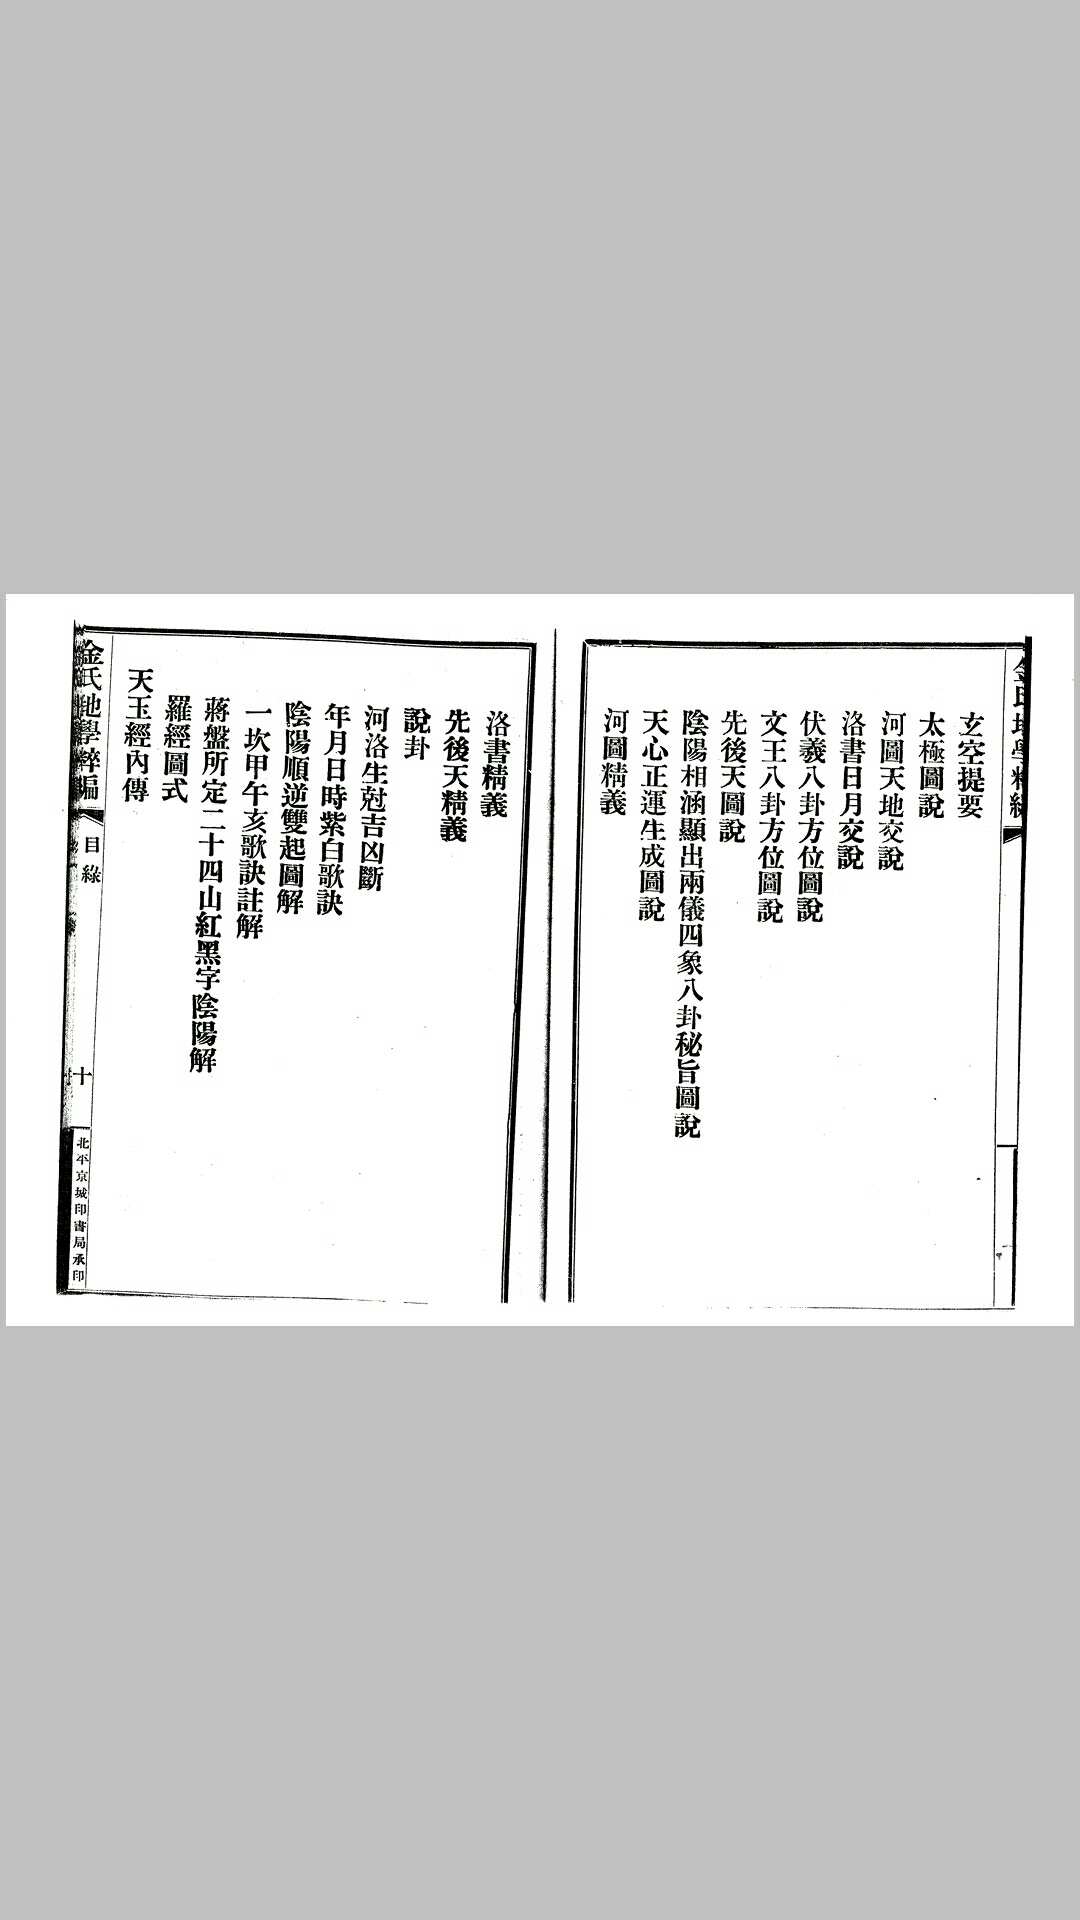 玄空提要
太極圖說
河圖天地交說
洛書日月交說
伏羲八卦方位圖說
文王八卦方位圖說
先後天圖說
陰陽相涵顯出兩儀四象八卦秘旨圖說
天心正運生成圖說
河圖精義
洛書精義
先後天精義
說卦
河洛生尅吉凶斷
年月日時紫白歌訣
陰陽順逆雙起圖解
一坎甲午亥歌訣註解
蔣盤所定二十四山紅黑字陰陽解
羅經圖式
天玉經內傳
金氏地學粹編
目錄
十
北平京城印書局承印